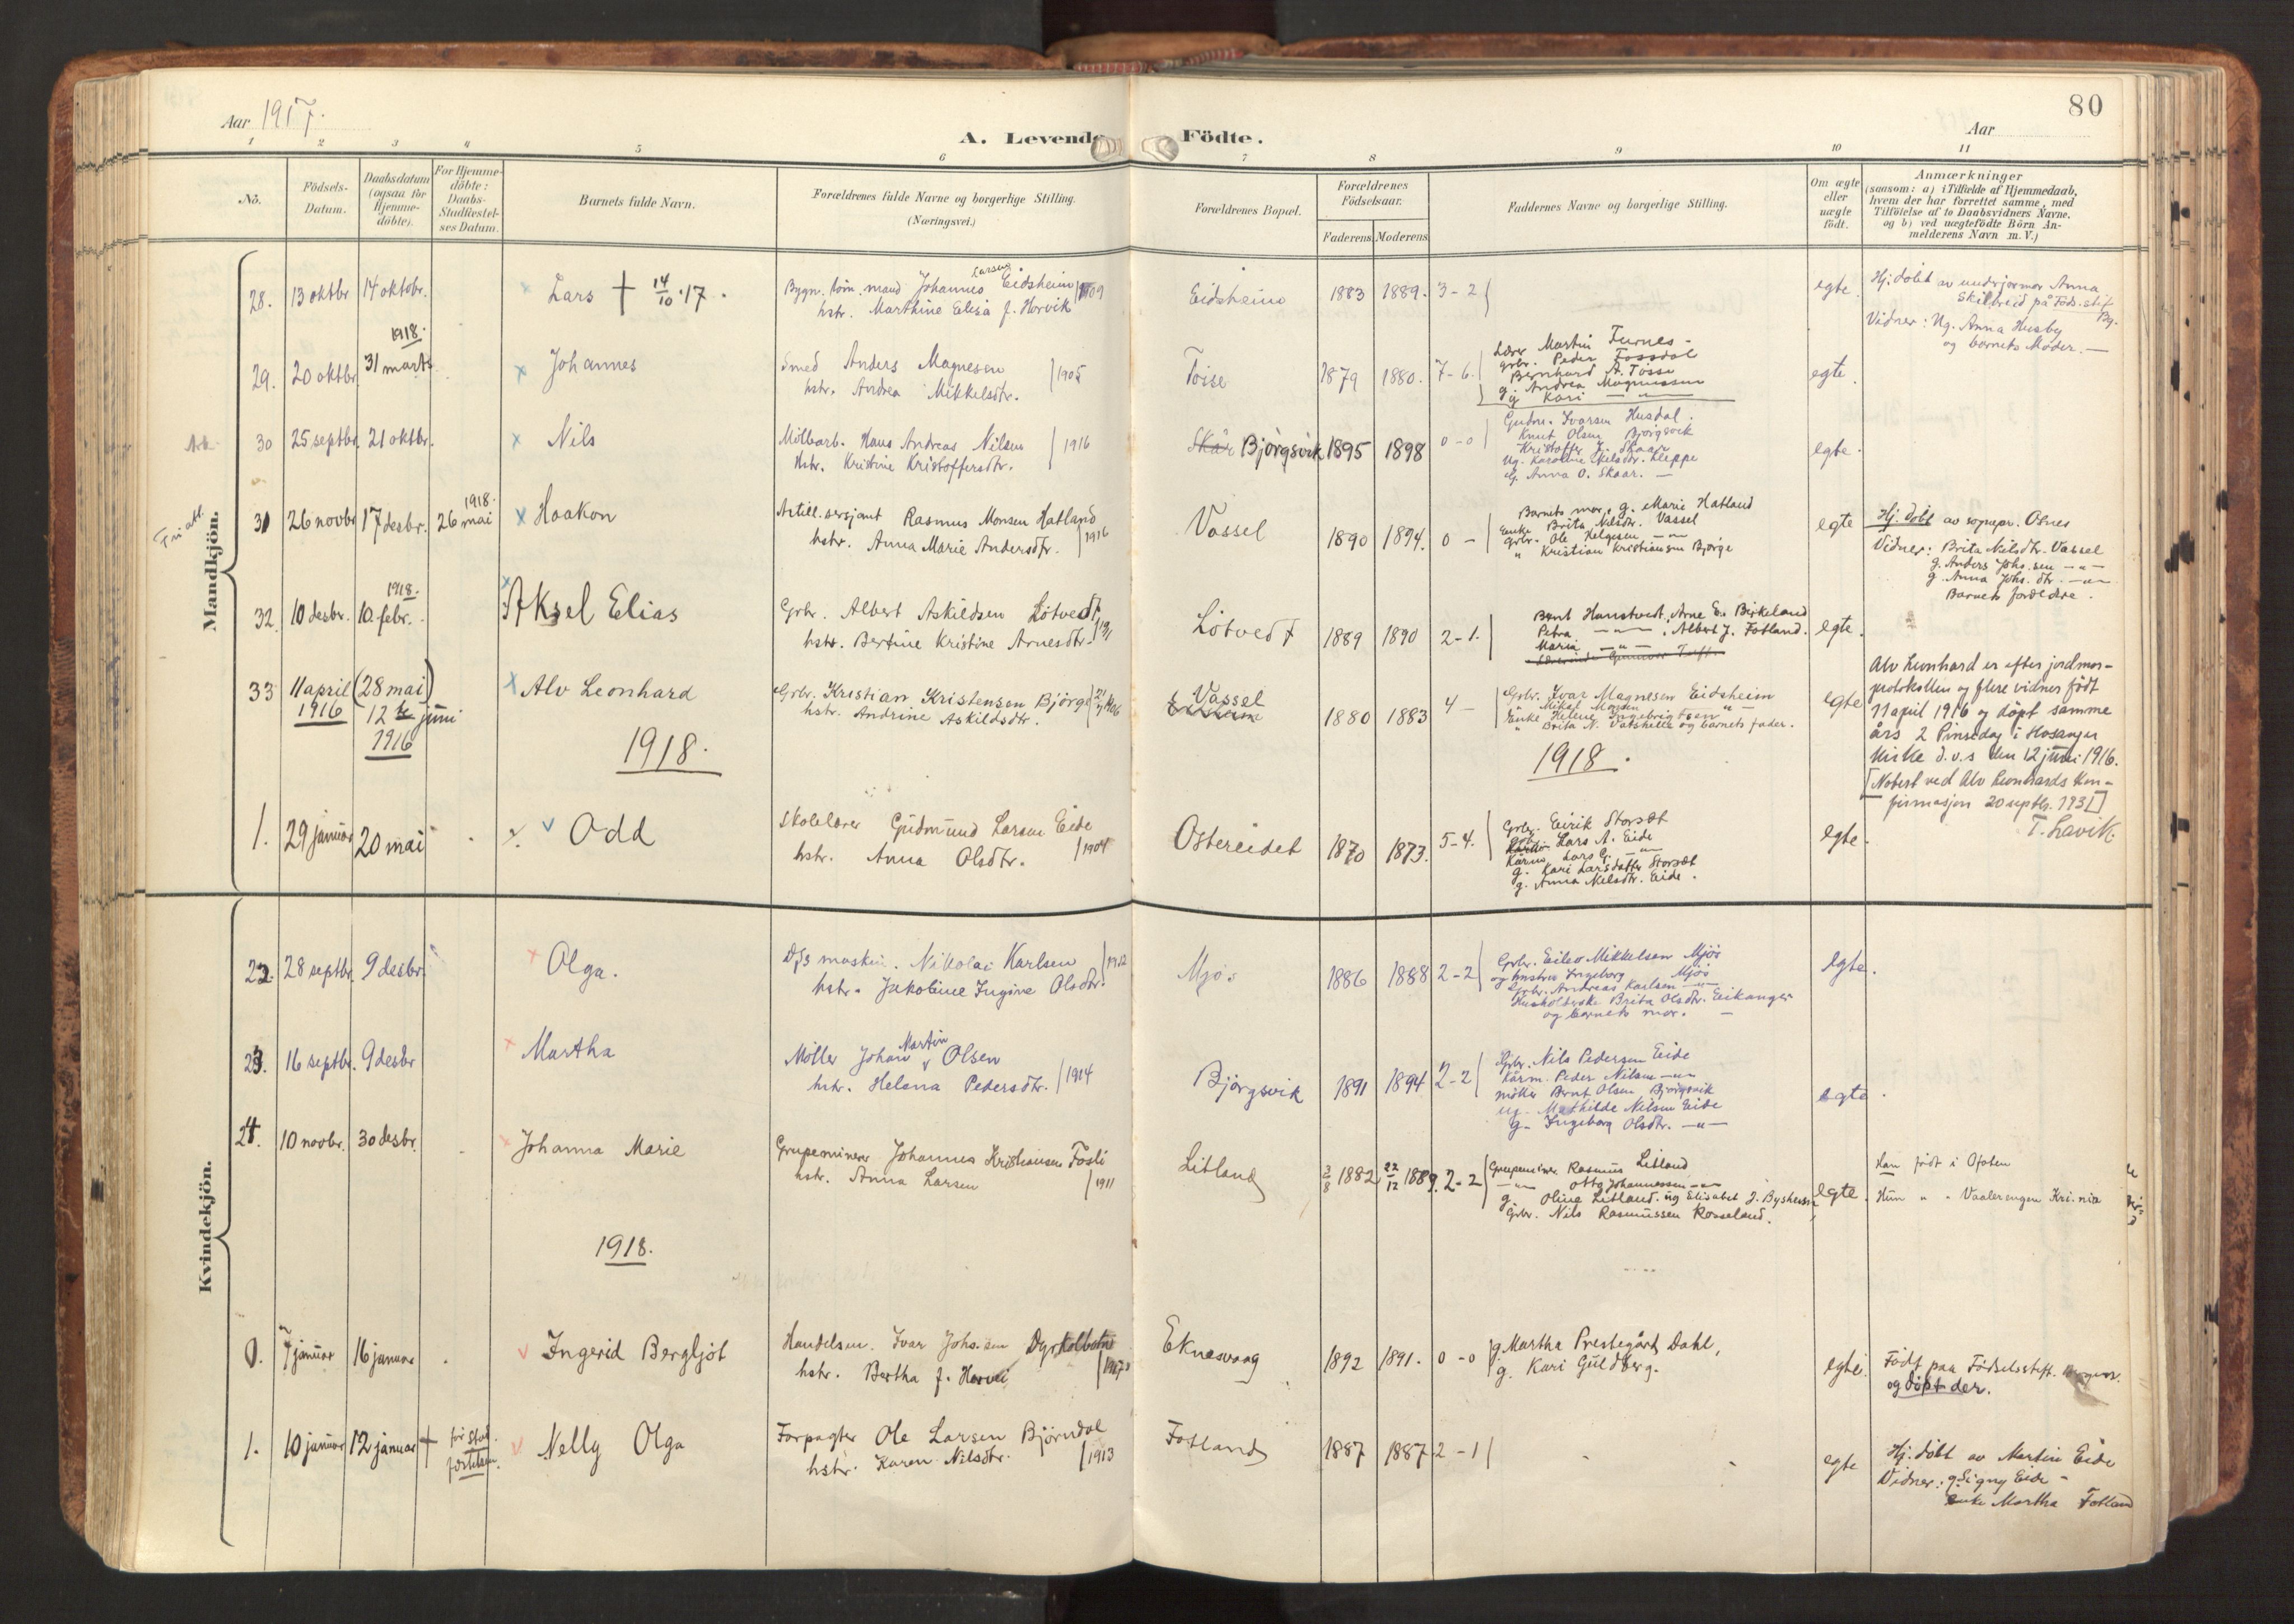 80
Aar 1917.
A. Levende Födte.
Aar
1 2 3 4 5 6 7 8 9 10 11
No.
Födsels-Datum.
Daabsdatum (ogsaa for Hjemme-döbte).
For Hjemme-döbte: Daabs-Stadfæstel-ses Datum.
Barnets fulde Navn.
Forældrenes fulde Navne og borgerlige Stilling. (Næringsvei.)
Forældrenes Bopæl.
Forældrenes Födselsaar.
Faderens. Moderens.
Faddernes Navne og borgerlige Stilling.
Om ægte eller uægte födt.
Anmærkninger
(saasom: a) i Tilfælde af Hjemmedaab,
hvem der har forrettet samme, med
Tilföielse af to Daabsvidners Navne,
og b) ved uægtefödte Börn An-
melderens Navn m. V.)
Mandkjön.
28. 13 oktbr 14 oktobr. Lars † 14/10.17.
Johannes Larsen Eidsheim 1909
hstr. Marthine Elisa f. Horvik
Eidsheim 1883 1889. 3-2
egte.
Hj. döbt av Anna
Vidner: Ug. Anna Husby
og barnets Moder.
1918.
29. 20 oktbr 31 marts Johannes
Smed Anders Magnesen 1905
hstr. Andrea Mikkelsdtr.
Tosse 1879 1880. 7-6.
Lærer Martin Furnes
Grbr. Peder Fossdal
Bernhard A. Tosse
g. Andrea Magnussen
g. Kari
egte.
30 25 septbr. 21 oktbr. Nils
Hans Andreas Nilsen 1916
Hstr. Kristine Kristoffersdtr.
Skår Bjørgsvik 1895 1898 0-0
Ivarsen Husdal.
Knut Olsen Bjørgsvik
Kristoffer J. Skaar
Ug. Karoline Nilsdtr. Kleppe
g. Anna O. Skaar.
egte.
31 26 novbr 17 desbr. 1918. 26 mai Haakon
Artill. sersjant Rasmus Monsen Hatland
hstr. Anna Marie Andersdtr. 1916
Vassel 1890 1894. 0 -
Barnets mor, g. Marie Hatland
Enke Brita Nilsdtr. Vassel
Grbr. Ole Helgesen
" Kristian Kristiansen Bjørge
egte
Hj. døbt av sognepr. Olnes
Vidner: Brita Nilsdtr. Vassel
g. Anders Johs.sen
g. Anna Johs. dtr.
Barnets forældre.
1918.
32. 10 desbr. 10. febr. Aksel Elias
Grbr. Albert Askildsen Løtvedt
hstr. Bertine Kristine Arnesdtr.
Løtvedt 1889 1890 2-1.
Bernt Hanstvedt, Arne E. Birkeland
Petra, Albert J. Fotland.
Maria
egte.
33 11 april 1916 (28 mai) 12te juni 1916 Alv Leonhard
Grbr. Kristian Kristensen Bjørge
hstr. Andrine Askildsdtr.
Vassel 1880 1883 4 -
Grbr. Ivar Magnesen Eidsheim
Mikal Monsen
Enke Helene Ingebrigtsen
" Brita N. Vatshelle og barnets fader.
egte
Alv Leonhard er efter jordmor-
protokollen og flere vidner født
11 april 1916 og døpt samme
års 2 Pinsedag i Hosanger
kirke d.v.s den 12 juni 1916.
[Notert ved Alv Leonhards kon-
firmasjon 20 septbr. 1931]
T. Lavik.
1918. 1918.
1. 29 januar 20 mai Odd
Skolelærer Gudmund Larsen Eide
hstr. Anna Olsdtr. 1904
Ostereidet 1870 1873. 5-4.
Grbr. Eirik Storsæt
Lars A. Eide
Lars G.
g. Kari Larsdatter Storsæt
g. Anna Nilsdtr. Eide.
egte.
Kvindekjön.
22. 28 septbr. 9 desbr. Olga.
Nikolai Karlsen 1912
hstr. Jakobine Ingine Olsdtr.
Mjøs 1886 1888 2-2
Grbr. Eilev Mikkelsen Mjøs
og hustru Ingeborg Mjøs
Grbr. Andreas Karlsen
Brita Olsdtr. Eikanger
og barnets mor.
egte.
23. 16 septbr. 9 desbr Martha
Møller Johan Martin Olsen
hstr. Helena Pedersdtr. 1914
Bjørgsvik 1891 1894 2-2
Grbr. Nils Pedersen Eide
Peder Nilsen
møller Bernt Olsen Bjørgsvik
Ug. Mathilde Nilsen Eide
g. Ingeborg Olsdtr.
egte.
24. 10 novbr. 30 desbr. Johanna Marie
Grupeminerer Johannes Kristiansen Fosli
hstr. Anna Larsen 1911
Litland 3/8 1882 22/12 1889. 2-2
Grupeminer Rasmus Litland
Otto Johannessen
g. Oline Litland. ug Elisabet J. Bysheim
Grbr. Nils Rasmussen Rosseland.
egte.
Han født i Ofoten
Hun " " Vaalerengen Kri.nia
1918.
0. 7 januar 16 januar Ingerid Bergljót
Handelsm. Ivar Johs.sen Dyrkolbotn
hstr. Bertha f. Hervei
Eknesvaag 1892 1891. 0-0
g. Martha Prestegård Dahl,
g. Kari Guldberg.
egte.
Født paa Fødselsstift.
og døpt der.
1. 10 januar 12 januar † før stad-fæstelsen. Nelly Olga
Forpagter Ole Larsen Bjørndal
hstr. Karen Nilsdtr. 1913
Fotland 1887 1887 2-1
egte
Hj. døbt av Martin Eide
Vidner: g. Signy Eide
enke Martha Fotland